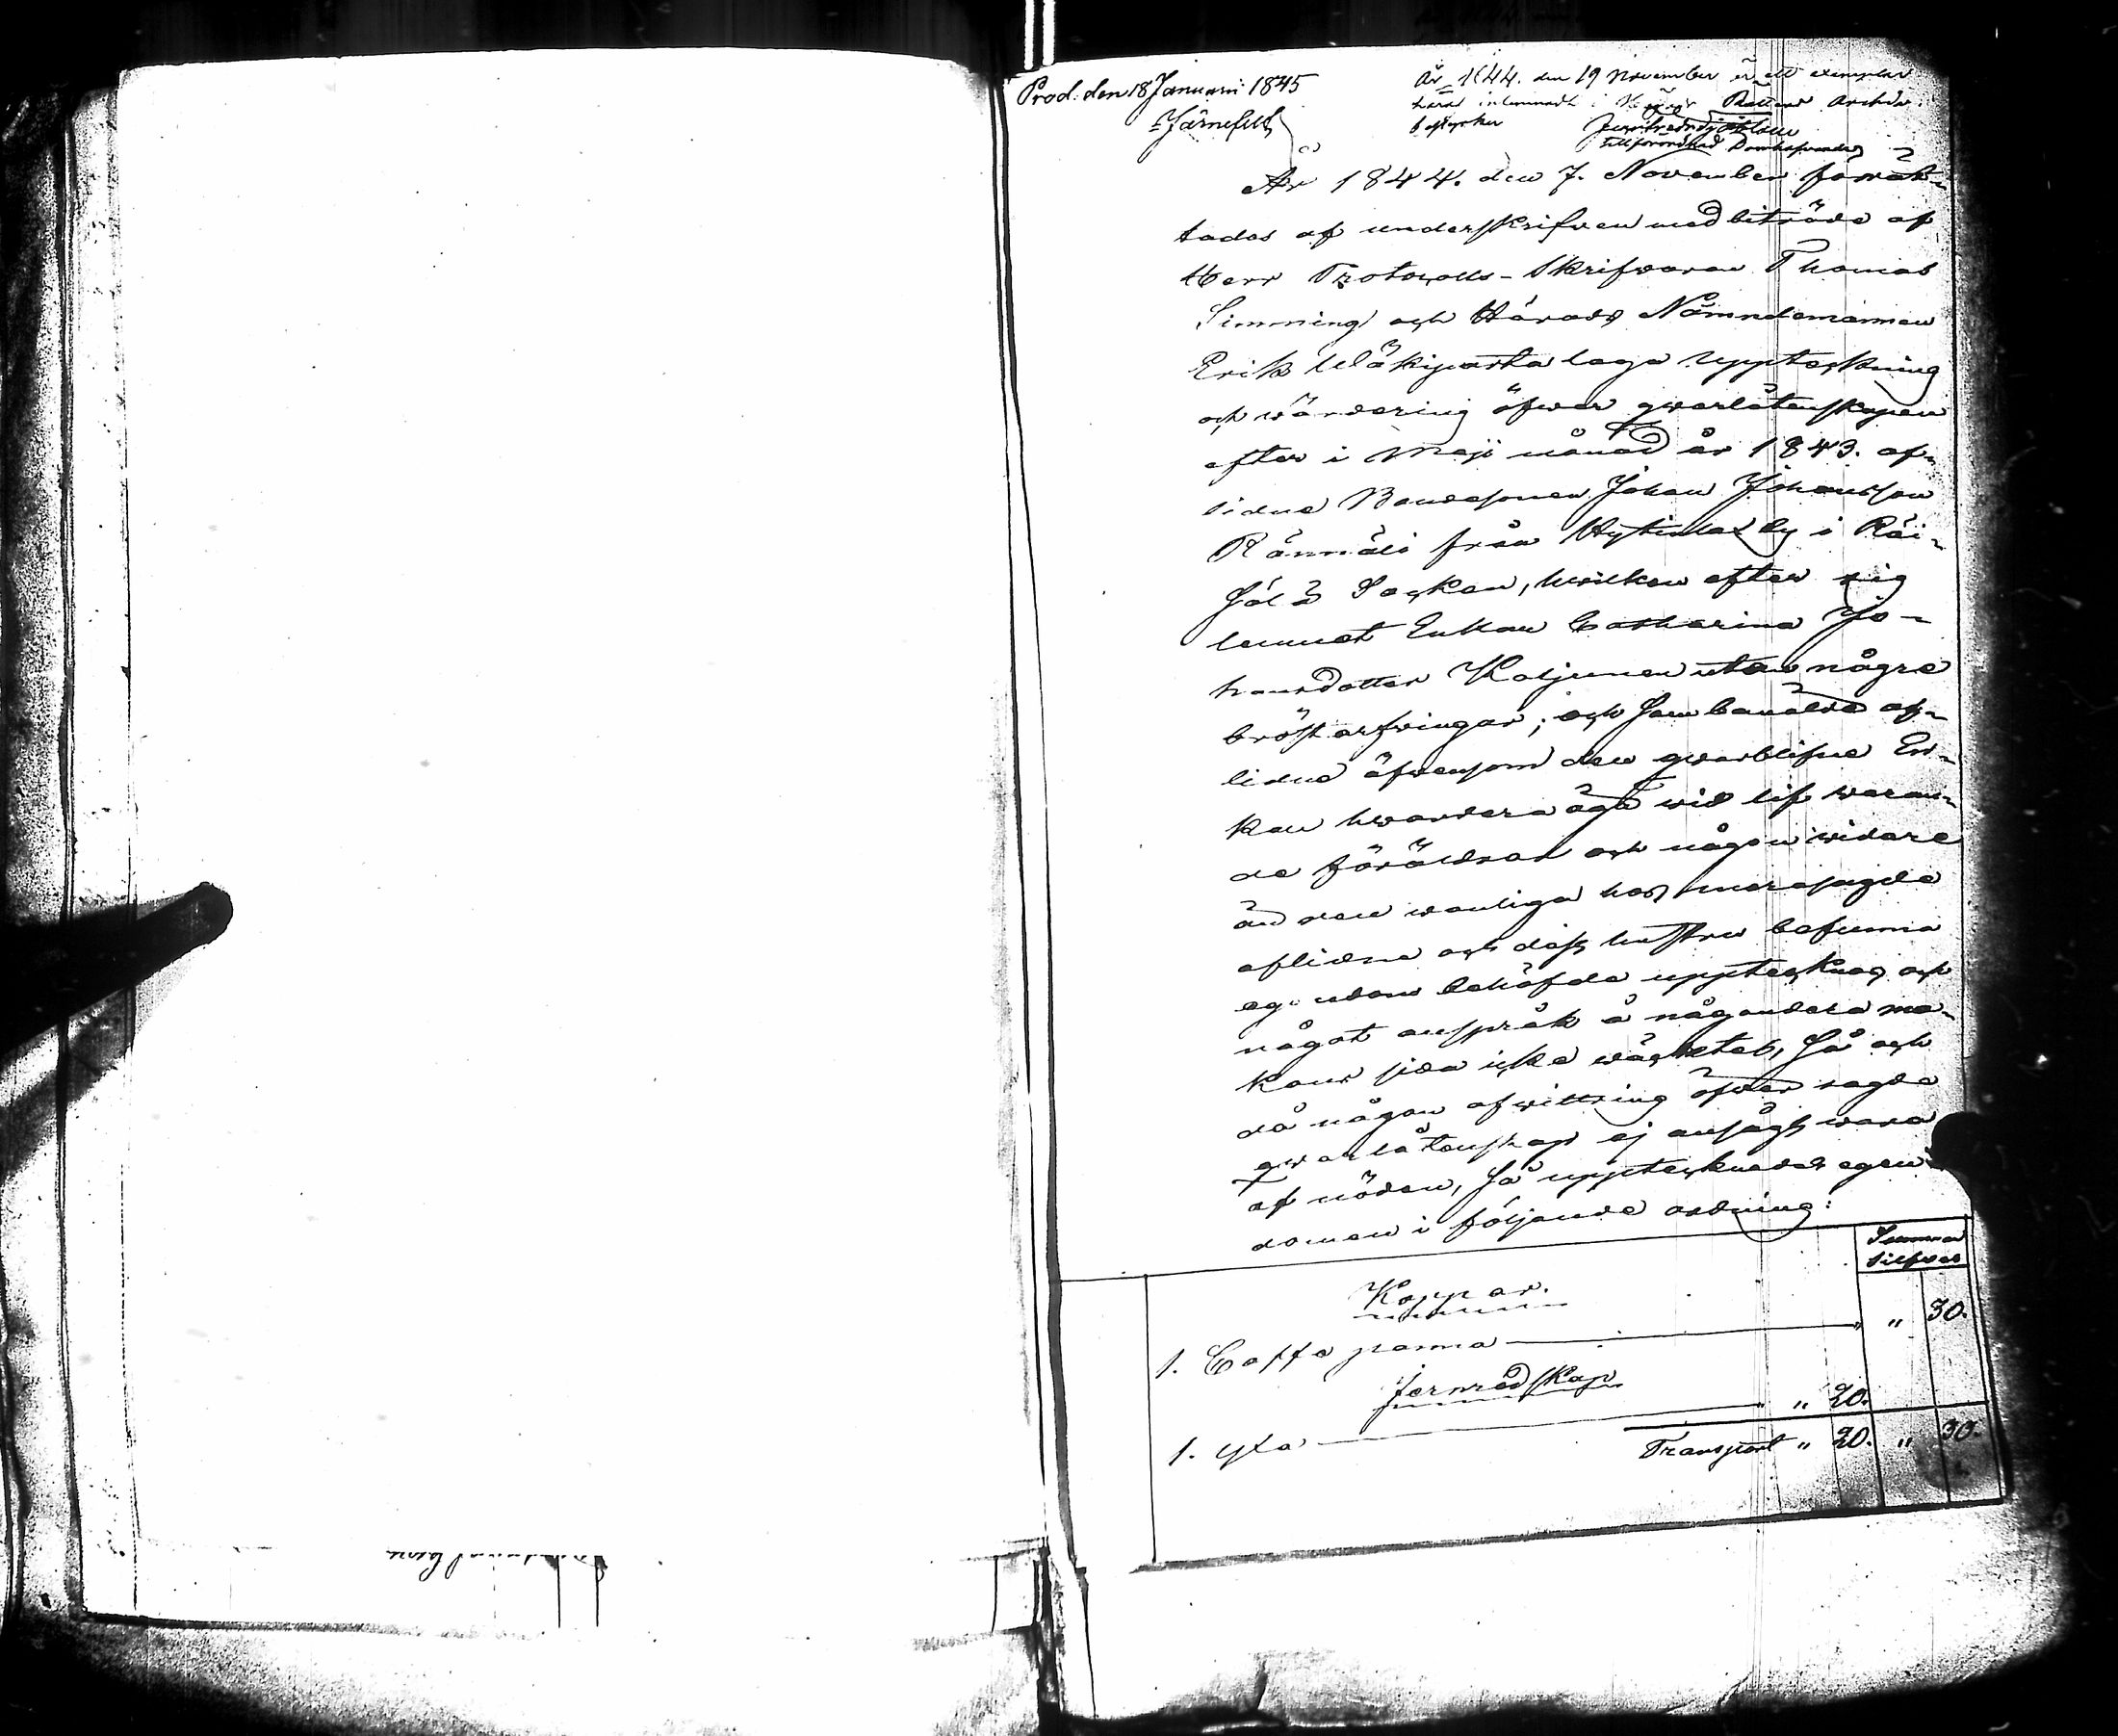 Prod: den 18 Januari 1845
Järnefelt
År 1844. den 19 November är ett exemplar
häraf inlemnadt i Rättens Archiv
betyder
tillförordnad Domhafvande
År 1844. den 7. November förrät-
tades af underskrifven med biträde af
Herr Protocolls-Skrifvaren Thomas
Simming och Härads Nämndemannen
Erik Wäkiparta laga uppteckning
och wärdering öfwer qwarlåtenskapen
efter i Maji månad år 1843. af-
lidne Bondesonen Johan Johansson
Rännäli från Hytinlax by i Räi-
sälä Socken, hwilken efter sig
lemnat Enkan Catharina Jo-
hansdotter Koljunen utan några
bröstarfwingar; och som bemälde af-
lidne äfwensom den qwarblifne En-
kan hwardera äga wid lif waran-
de föräldrar och någon widare
än den wanliga hos merasagde
aflidne och dess hustru befunna
egendom behöfde upptecknas och
något anspråk å någondera ma-
kans sida icke wäcktes, så och
då någon afwittring öfwer sagde
qwarlåtenskap ej ansågs wara
af nöden, så upptecknades egen
domen i följande ordning:
Summor
Silfwer
Koppar.
1. Caffe panna " 30.
Jernredskap
1. yxa " 20.
Transport " 20. " 30.